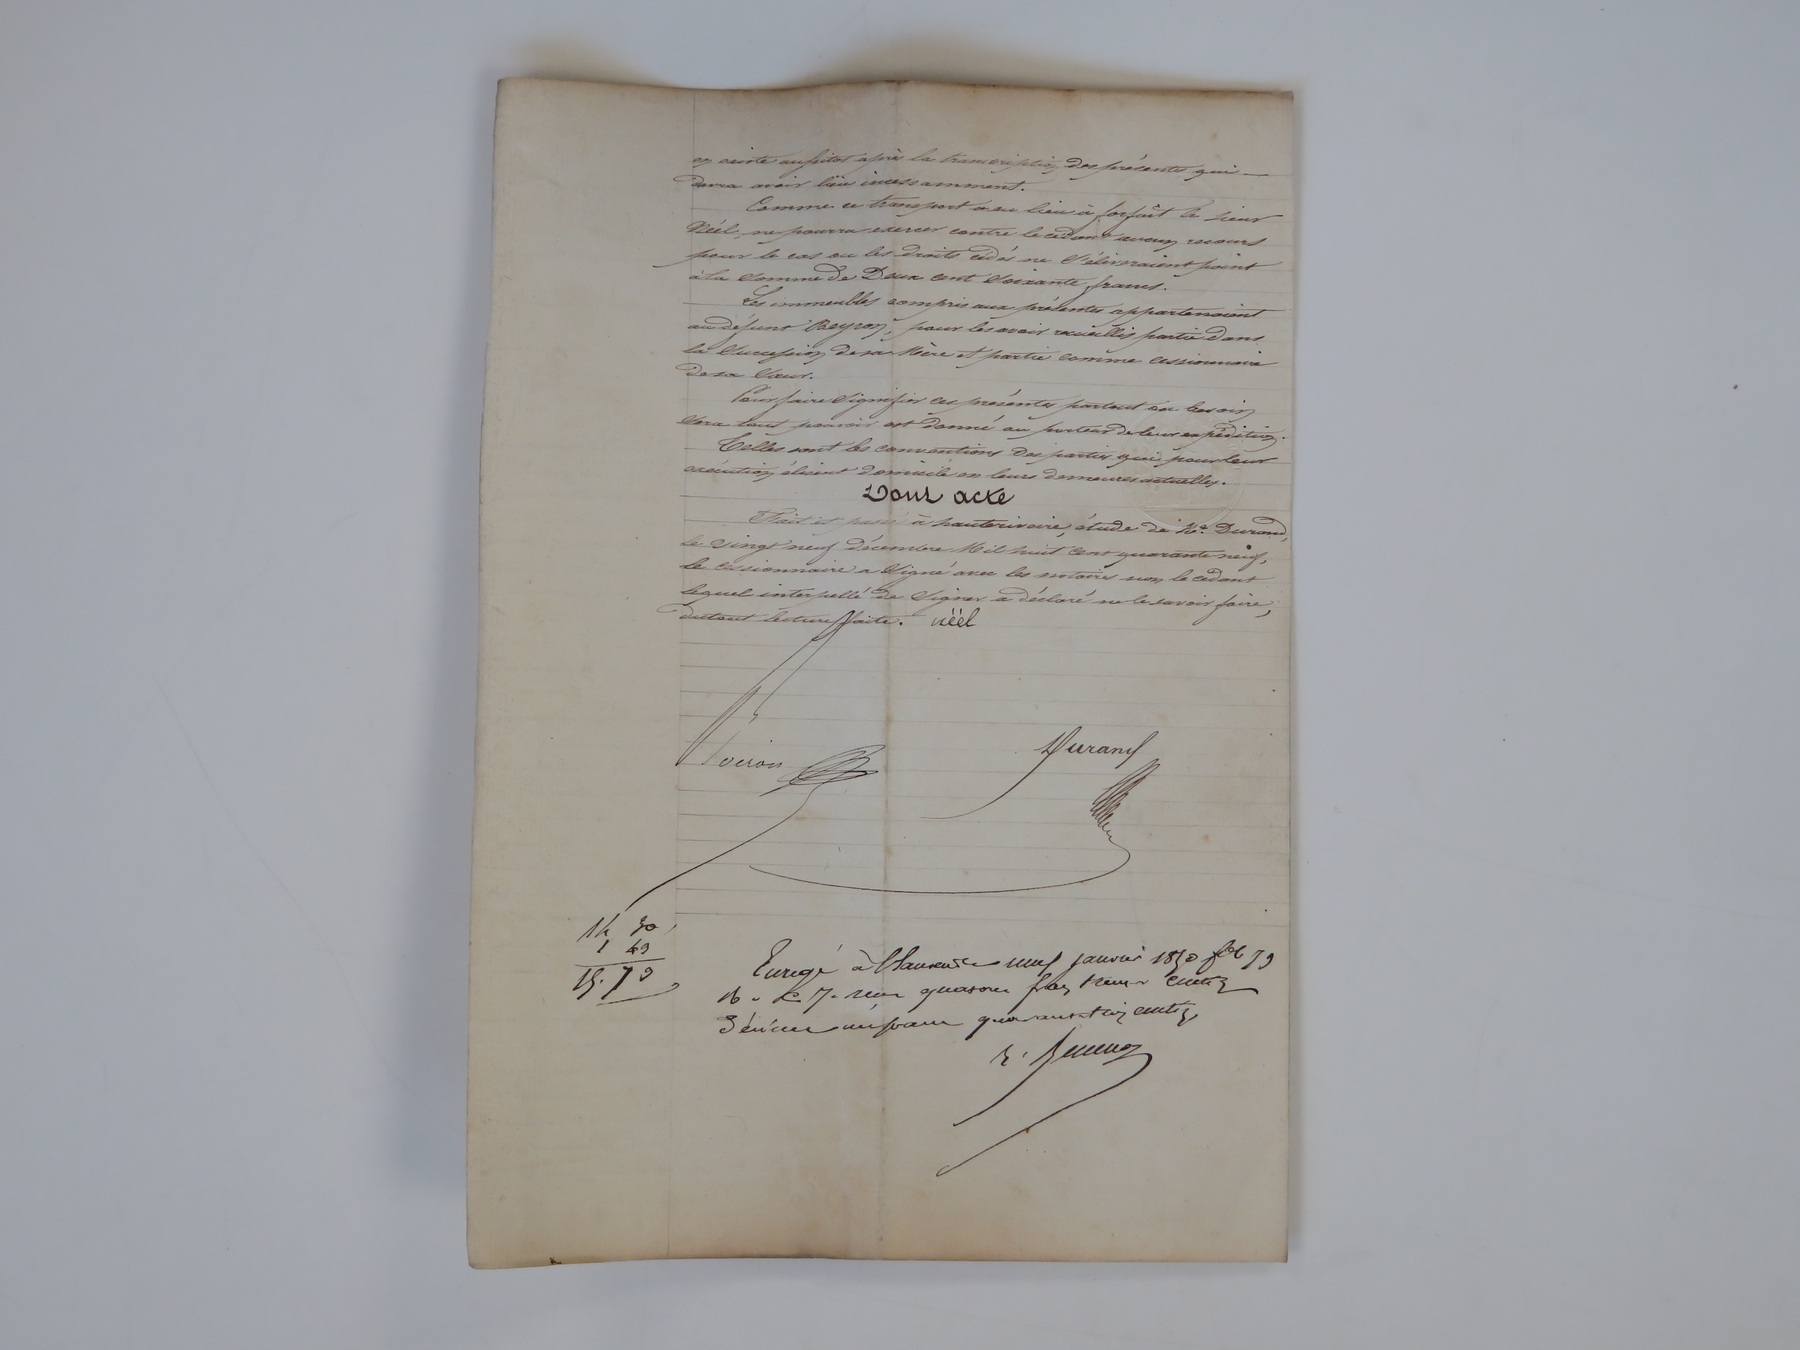 en ceinte aussitot après la transcription des présentes qui
devra avoir lieu incessamment.
Comme ce transport a eu lieu à forfait le sieur
Néél, ne pourra exercer contre le cédant aucun recours
pour le cas ou les droits cédés ne s'élèveraient point
à la somme de Deux cent soixante francs.
Les immeubles compris aux présentes appartenaient
au défunt Peyron, pour les avoir recueillis partie dans
la succession de sa Mère et partie comme cessionnaire
de sa sœur.
Pour faire signifier ces présentes partout ou besoin
sera tout pouvoir est donné au porteur de leur expédition.
Telles sont les conventions des parties qui pour leur
exécution élisent domicile en leurs demeures actuelles.
Dont acte
Fait et passé à hauterivoire, étude de Me Durand,
le vingt neuf décembre Mil huit cent quarante neuf,
le cessionnaire a signé avec les notaires non le cédant
lequel interpellé de signer a déclaré ne le savoir faire,
dutout lecture faite. néél
Durand
14 30
1 43
15. 73
Enregé à neuf janvier 1850 fol 79